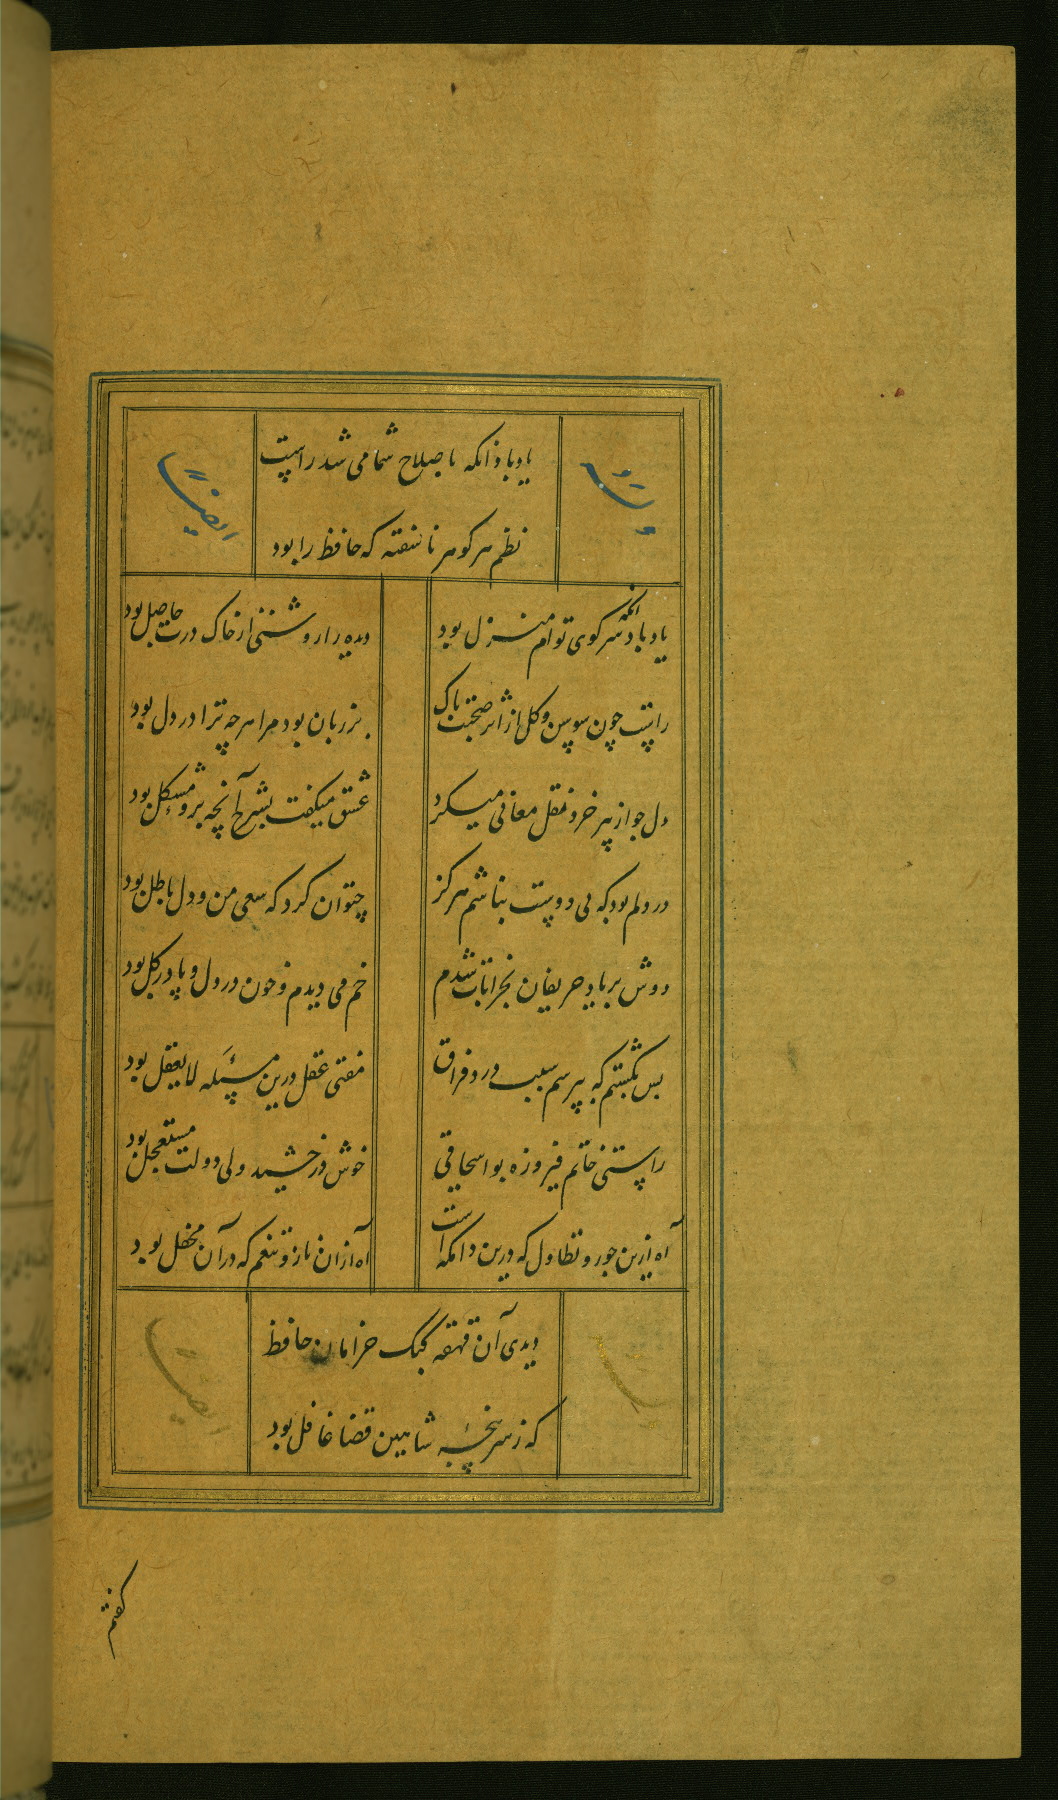 یاد باد انکه باصلاح شما می شد راست
نظم هر کوهر ناسفته که حافظ را بود
وله
ایضاً
یاد باد انکه سر کوی توام منزل بود
دیده را روشنی از خاک درت حاصل بود
راست چون سوسن و کل از اثر صحبت پاک
بر زبان بود مرا هر چه ترا در دل بود
دل جو از پیر خرد نقل معانی میکرد
عشق میکفت بشرح آنچه برو مشکل بود
در دلم بود که بی دوست نباشم هرکز
چتوان کرد که سعی من و دل باطل بود
دوش بر یاد حریفان بخرابات شدم
خم می دیدم و خون در دل و پا در کل بود
بس بکشتم که بپرسم سبب درد فراق
مفتی عقل درین مسئله لا یعقل بود
راستی خاتم فیروزه بو اسحاقی
خوش درخشید ولی دولت مستعجل بود
آه ازین جور و تطاول که درین دامکه است
آه از آن ناز و تنعم که در آن محفل بود
دیدی آن قهقهه کبک خرامان حافظ
که ز سر پنجهٔ شاهین قضا غافل بود
ایضاً
کفتم